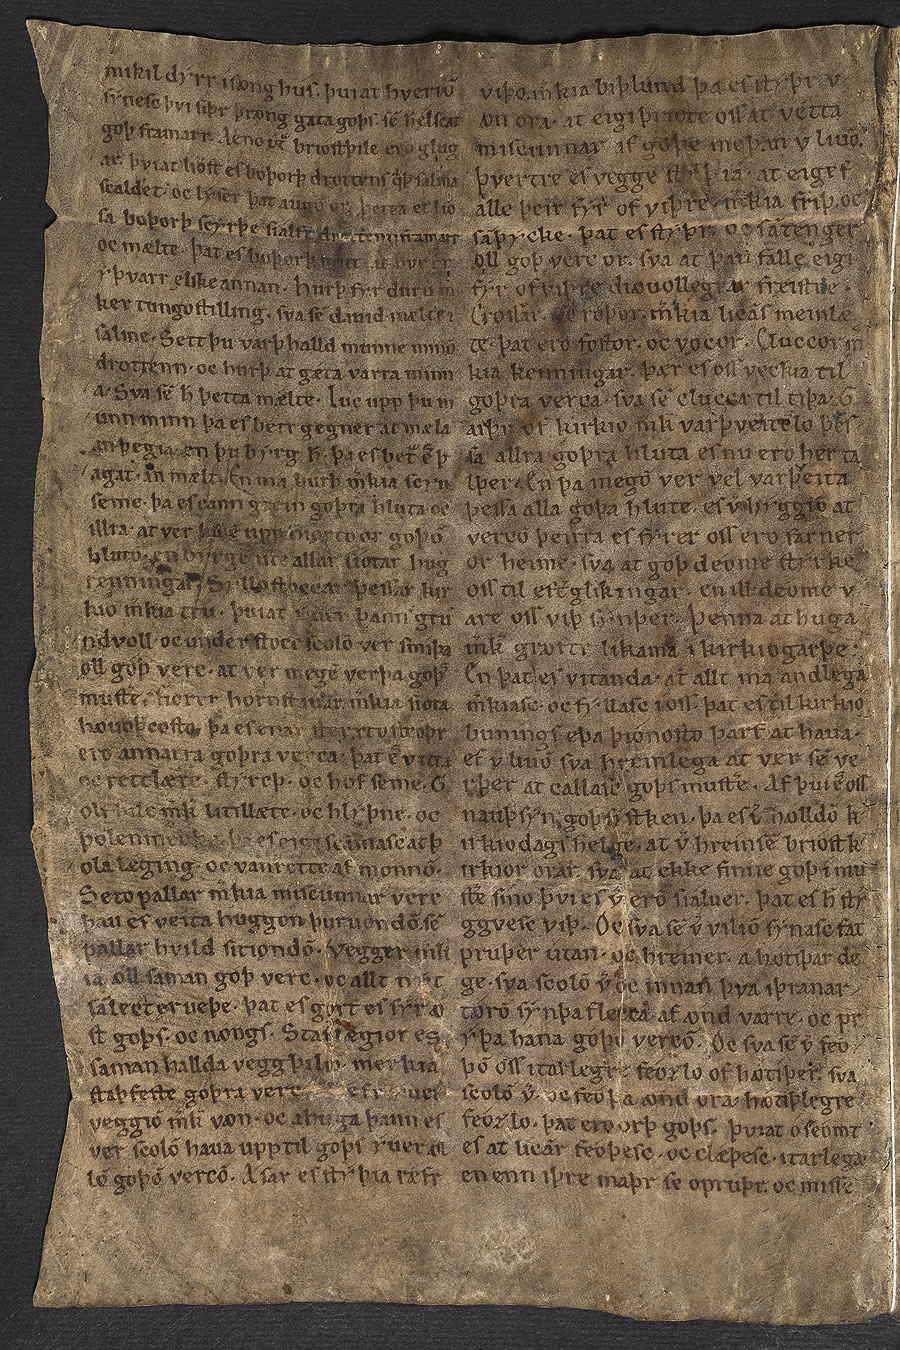 mikil dyrr isǫnghus. þuiat hveriū
synesc þvi siþr þrǫng gata goþs. sē h̄ elscar
goþ framarr.
ar. þviat liost es boþorþ drottens q̄þ salma
scaldet. oc lyser þat augo or. þetta et lio
sa boþorþ scyrþe sialfr drottenn framarr
oc mælte. þat es boþorþ mitt at ér
yþvarr elske annan. Hurþ fyr durū m̄
ker tungo stilling. sva sē david mælte i
salme. Sett þu varþhalld munne minō
drottenn. oc hurþ at gæta varra minn
a. Sva sē h̄ þetta mælte. Luc upp þu m
unn minn þa es betr gegner at mæla
an þegia. en þu byrg h̄. þa es bet̄ ē þ
agat. an mælt. En ma hurþ m̄kia scyn
seme. þa es cann grein goþra hluta oc
illra. at ver upp oc goþō
hlutō. en byrge ute allar liotar hug
renningar. Syllo stoccar þessar kir
kio m̄kia tru. þuiat þann gru
ndvoll. oc under stocc scolō ver smiþa
oll goþ verc. at ver megē verþa goþs
muste. fiorer hornstafar m̄kia fiora
hǫvoþcosto. þa es enar stercxto stoþr
ero annarra goþra verca. þat ē vitra
oc rettlæte. styrcþ. oc hofseme. G
m̄k litillæte. oc hlyþne. oc
þolenmǫþe. þa es eigi scamasc at þ
ola læging. oc vanrette af monnō.
Seto pallar m̄kia miscunnar verc
þau es veita huggon þurvǫndō. sē
pallar hvild sitiondō. Vegger m̄k
ia oll saman goþ verc. oc allt
þat es gort es fyr ǫ
st goþs. oc nǫngs. Stallægior es
saman hallda veggþilio. merkia
staþfeste goþra verca
veggiō m̄k vǫn. oc ahuga þann es
ver scolō hava upp til goþs yver ǫl
lō goþō vercō. Asar es styþia ræfr
viþo. m̄kia biþlund þa es styþr v
ǫn ora. at eigi þriote oss at vetta
miscunnar af goþe meþan v̄ livō.
þvertre es vegge styþia. at eigi f
alle þeir fyr of viþre. m̄kia friþ oc
saþycke. þat es styþr. oc sātenger
oll goþ verc or. sva at þau falle eigi
fyr of viþre diovollegrar freistne.
Crosar. oc roþor. m̄kia licās meinlæ
te. þat ero fostor. oc vocor. Cluccor m̄
kia kenningar. þær es oss veckia til
goþra verca. sva sē clucca til tiþa. G
arþr of kirkio m̄k varþveitslo þes
sa allra goþra hluta es nu ero her ta
lþer. En þa megō ver vel varþveita
þessa alla goþa hlute. es v̄ hyggiō at
vercō þeirra es fyrer oss ero farner
or heime. sva at goþ dǫme styrke
oss til eftglikingar. en ill dǫme v
are oss viþ synþer. Þenna athuga
m̄k grǫftr likama i kirkiogarþe.
En þat es vitanda. at allt ma andlega
m̄kiasc. oc fyllasc i oss. þat es til kirkio
bunings eþa þionosto þarf at hava.
ef v̄ livō sva hreinlega at ver sē ve
rþer at callasc goþs muste. Af þui ē oss
nauþsyn goþs ystken. þa es v̄ hǫlldō k
irkiodags helge. at v̄ hreinsē briost k
irkior orar. sva at ekke finne goþ i mu
ste sino þvi es v̄ erō sialver. þat es h̄ sty
ggvesc viþ. Oc sva sē v̄ viliō synasc fag
pruþer utan. oc hreiner. a hǫtiþar de
ge. sva scolō v̄ oc innan þva iþranar
tǫrō synþa flecca af ǫnd varre. oc pr
yþa hana goþō vercō. Oc sva sē v̄ fǫ
þō oss itarlegre fǫzlo of hǫtiþer. sva
scolō v̄. oc fǫþa ǫnd ora hǫtiþlegre
fǫzlo. þat ero orþ goþs. þviat osǫmt
es at licār fǫþesc. oc clæþesc itarlega
en enn iþre maþr se opruþr. oc misse